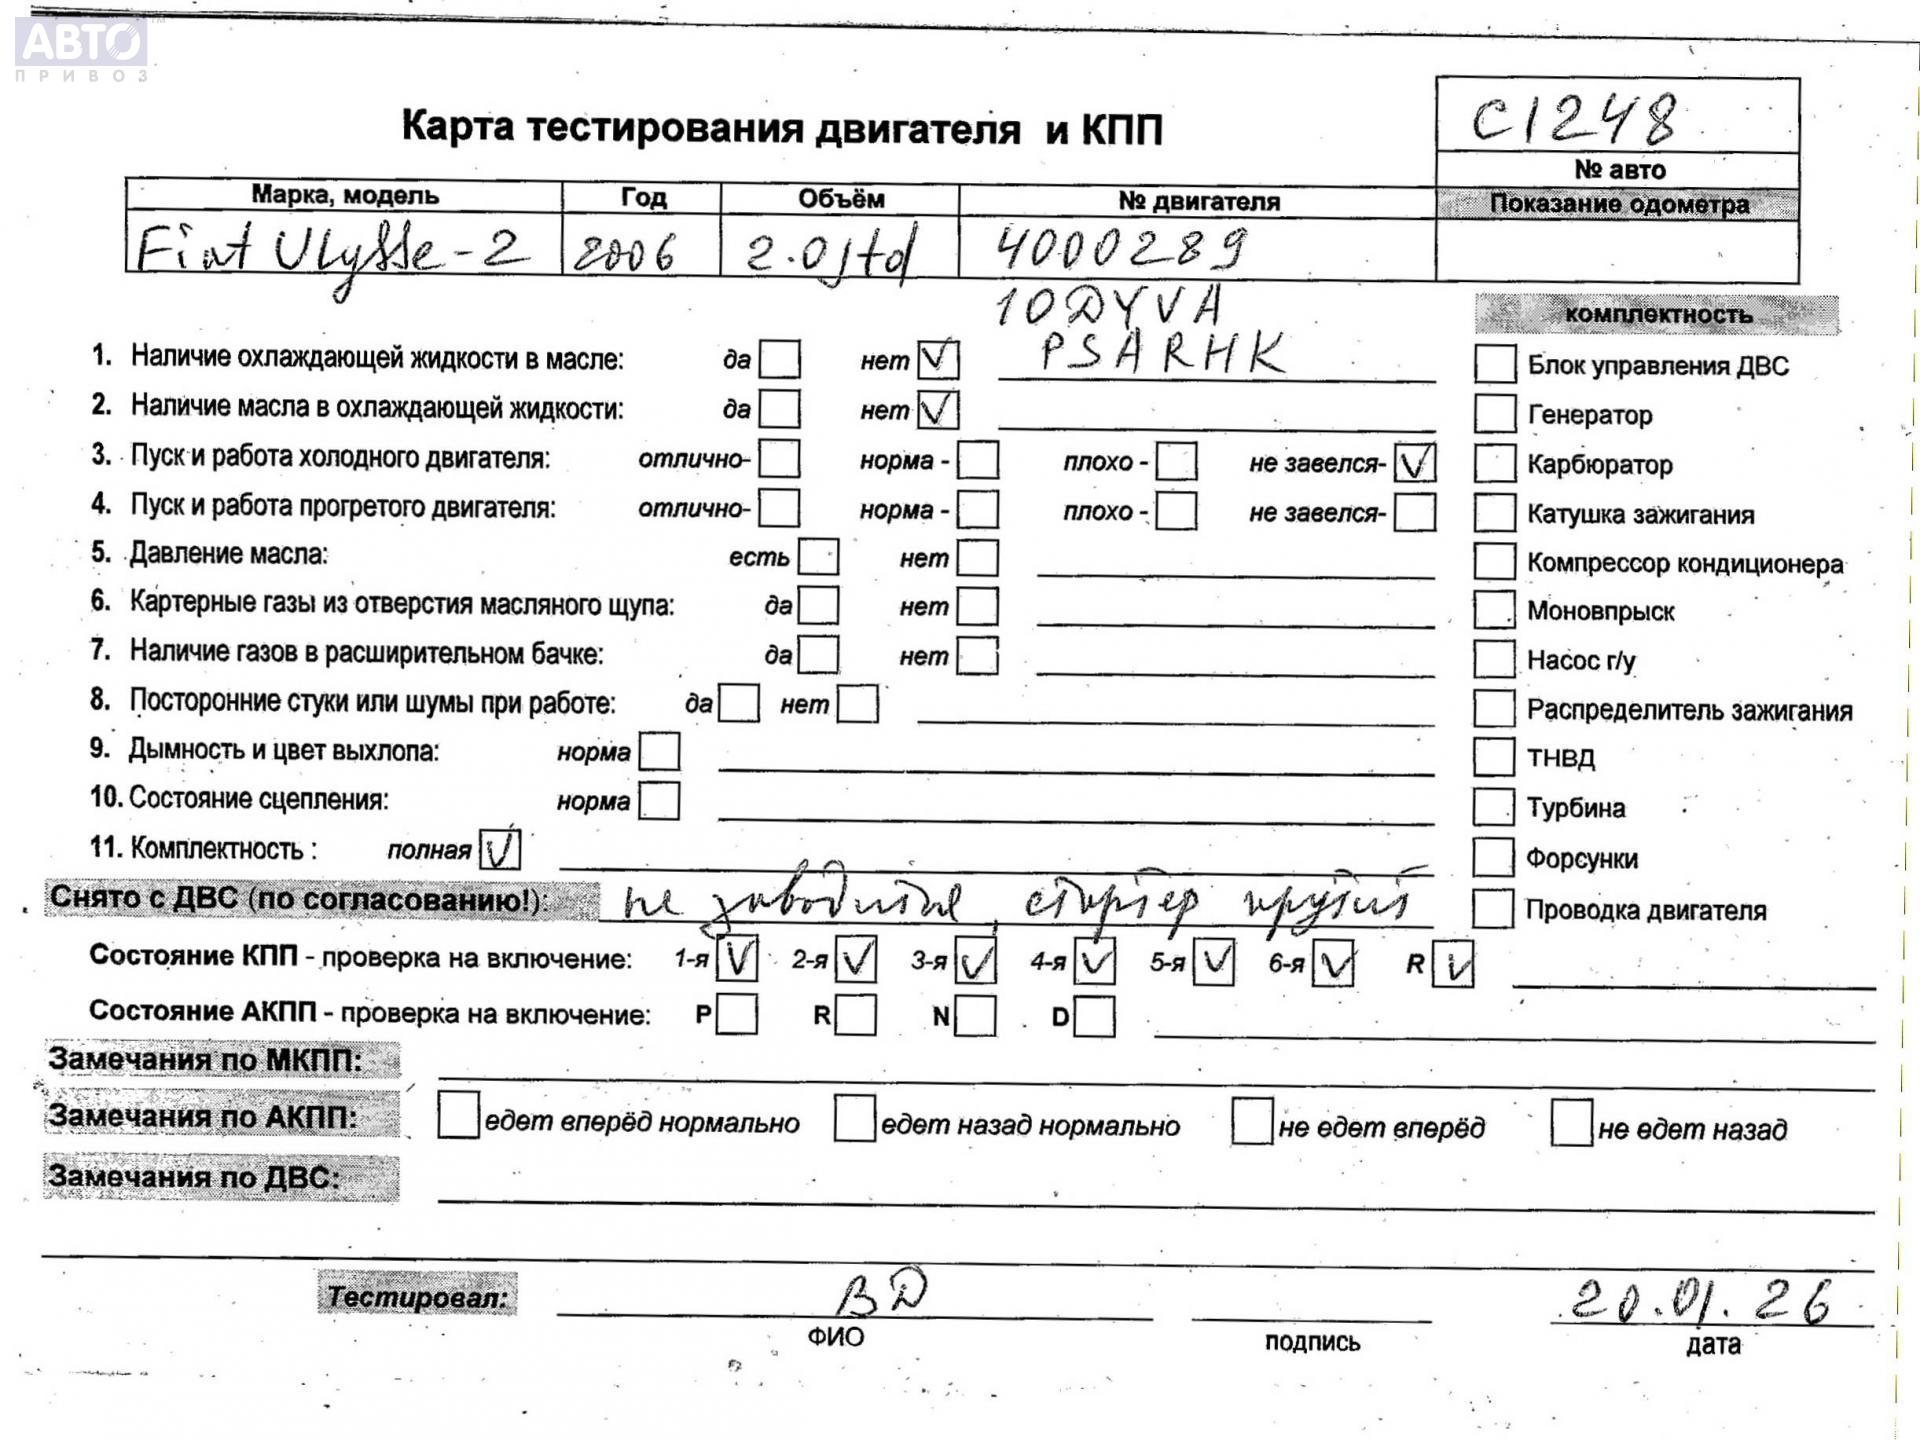 АВТО
ПРИВОЗ
C1248
Карта тестирования двигателя и КПП
№ авто
Марка, модель Год Объём № двигателя Показание одометра
Fiat Ulysse-2 2006 2.0jtd 4000289
10DYVA
комплектность
PSARHK
1. Наличие охлаждающей жидкости в масле: да нет √
Блок управления ДВС
2. Наличие масла в охлаждающей жидкости: да нет √
Генератор
3. Пуск и работа холодного двигателя: отлично- норма - плохо - не завелся- √
Карбюратор
4. Пуск и работа прогретого двигателя: отлично- норма - плохо - не завелся-
Катушка зажигания
5. Давление масла: есть нет
Компрессор кондиционера
6. Картерные газы из отверстия масляного щупа: да нет
Моновпрыск
7. Наличие газов в расширительном бачке: да нет
Насос г/у
8. Посторонние стуки или шумы при работе: да нет
Распределитель зажигания
9. Дымность и цвет выхлопа: норма
ТНВД
10. Состояние сцепления: норма
Турбина
11. Комплектность : полная √
Форсунки
Снято с ДВС (по согласованию!): не заводится, стартер крутит
Проводка двигателя
Состояние КПП - проверка на включение: 1-я √ 2-я √ 3-я √ 4-я √ 5-я √ 6-я √ R √
Состояние АКПП - проверка на включение: P R N D
Замечания по МКПП:
Замечания по АКПП: едет вперёд нормально едет назад нормально не едет вперёд не едет назад
Замечания по ДВС:
Тестировал: ВД 20.01.26
ФИО подпись дата